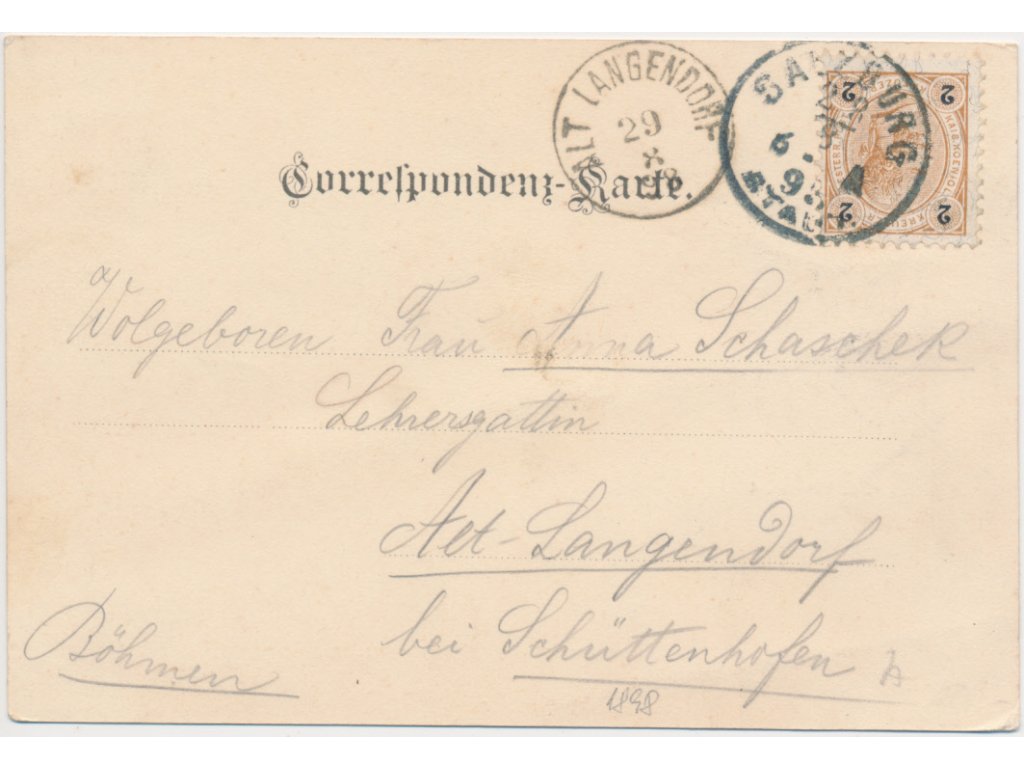 ALT LANGENDORF
29
X
SALZBURG
STADT.
A
2 2
2 2
Correspondenz-Karte.
Wolgeboren Frau Anna Schaschek
Lehrersgattin
Alt-Langendorf
bei Schüttenhofen
Böhmen
1898